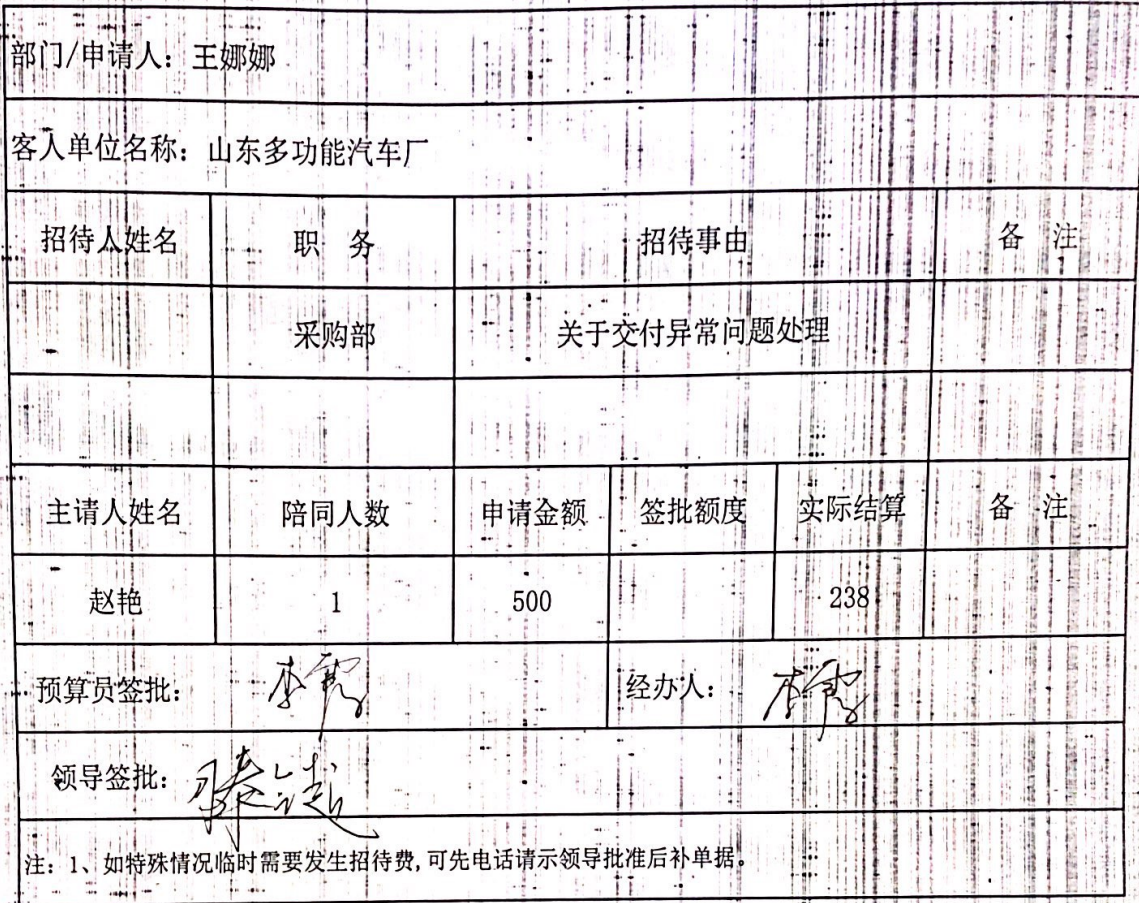 部门/申请人：王娜娜
客人单位名称：山东多功能汽车厂
招待人姓名 职 务 招待事由 备 注
采购部 关于交付异常问题处理
主请人姓名 陪同人数 申请金额 签批额度 实际结算 备 注
赵艳 1 500 238
预算员签批：李霞 经办人：李霞
领导签批：
注：1、如特殊情况临时需要发生招待费,可先电话请示领导批准后补单据。